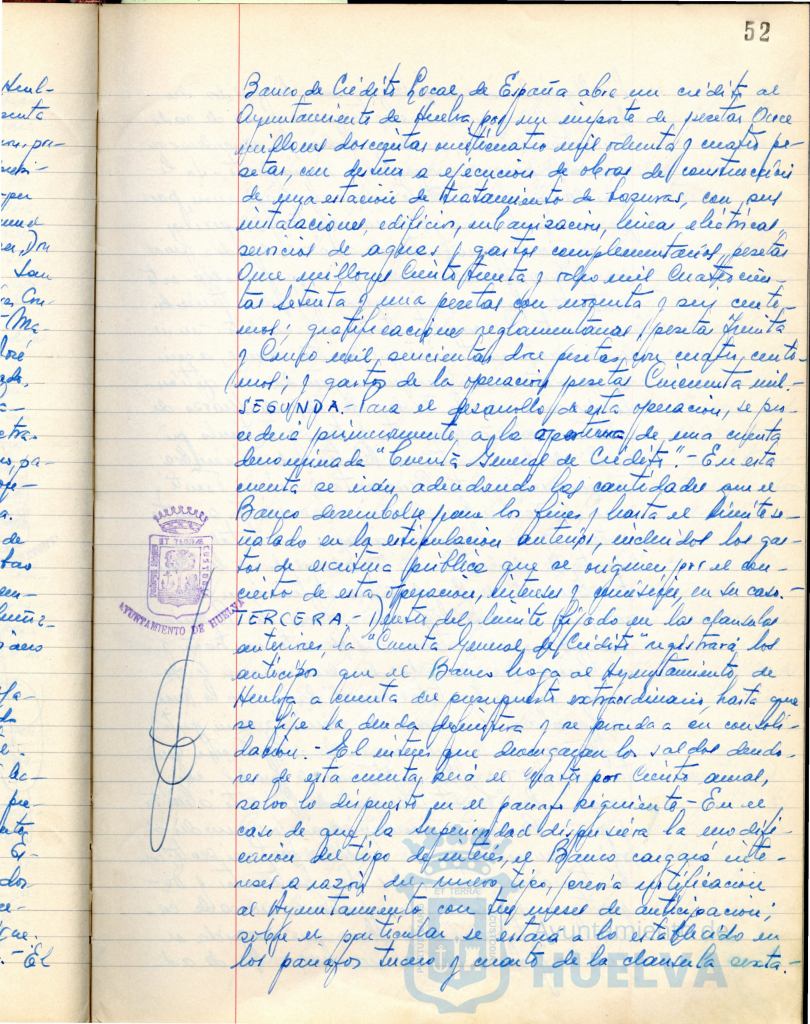 52
Banco de Crédito Local de España abre un crédito al
Ayuntamiento de Huelva, por un importe de pesetas Once
millones doscientas veinticuatro mil ochenta y cuatro pe-
setas, con destino a ejecución de obras de construcción
de una estación de tratamiento de basuras, con sus
instalaciones, edificios, urbanización, líneas eléctricas,
servicios de aguas y gastos complementarios, pesetas
Once millones Ciento treinta y ocho mil Cuatrocien-
tas Setenta y una pesetas con noventa y seis cénti-
mos; gratificaciones reglamentarias, pesetas Treinta
y Cinco mil, seiscientas doce pesetas, con cuatro cénti-
mos; y gastos de la operación, pesetas Cincuenta mil.-
SEGUNDA.- Para el desarrollo de esta operación, se pro-
cederá primeramente, a la apertura de una cuenta
denominada "Cuenta General de Crédito".- En esta
cuenta se irán adeudando las cantidades que el
Banco desembolse para los fines y hasta el límite se-
ñalado en la estipulación anterior, incluidos los gas-
tos de escritura pública que se originen por el con-
cierto de esta operación, intereses y comisión, en su caso.-
TERCERA.- Dentro del límite fijado en las cláusulas
anteriores, la "Cuenta General de Crédito" registrará los
anticipos que el Banco haga al Ayuntamiento de
Huelva a cuenta del presupuesto extraordinario, hasta que
se fije la deuda definitiva y se proceda a su consoli-
dación.- El interés que devengarán los saldos deudo-
res de esta cuenta, será el cuatro por Ciento anual,
salvo lo dispuesto en el párrafo siguiente.- En el
caso de que la Superioridad dispusiera la modifi-
cación del tipo de interés, el Banco cargará inte-
reses a razón del nuevo tipo, previa notificación
al Ayuntamiento con tres meses de anticipación;
sobre el particular se estará a lo establecido en
los párrafos tercero y cuarto de la cláusula sexta.-
AYUNTAMIENTO DE HUELVA
Ayuntamiento de
HUELVA